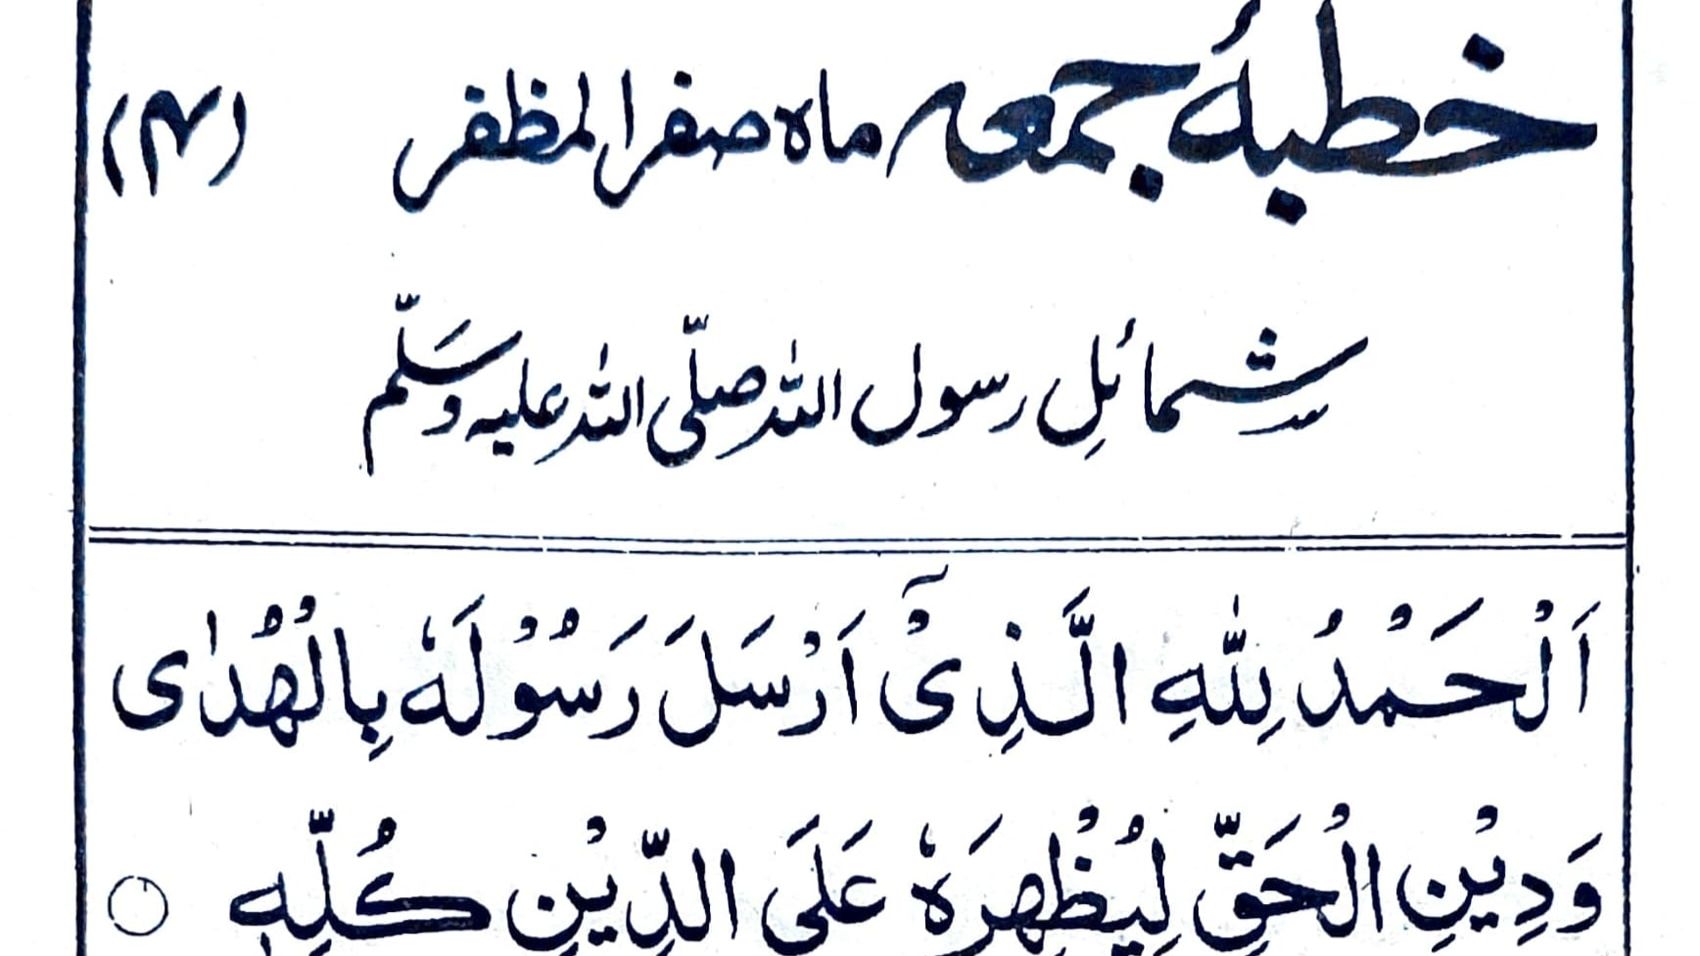 خطبۂ جمعہ ماہ صفر المظفر (۴)
شمائلِ رسول اللہ صلّی اللہ علیہ وسَلّم
اَلْحَمْدُ لِلّٰهِ الَّذِیْۤ اَرْسَلَ رَسُوْلَهٗ بِالْهُدٰی
وَدِیْنِ الْحَقِّ لِیُظْهِرَهٗ عَلَی الدِّیْنِ کُلِّهٖ ○